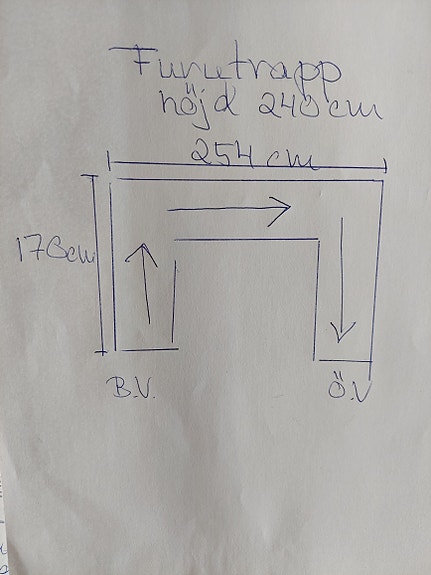 Furutrapp
höjd 240 cm
254 cm
178cm
B.V.
Ö.V